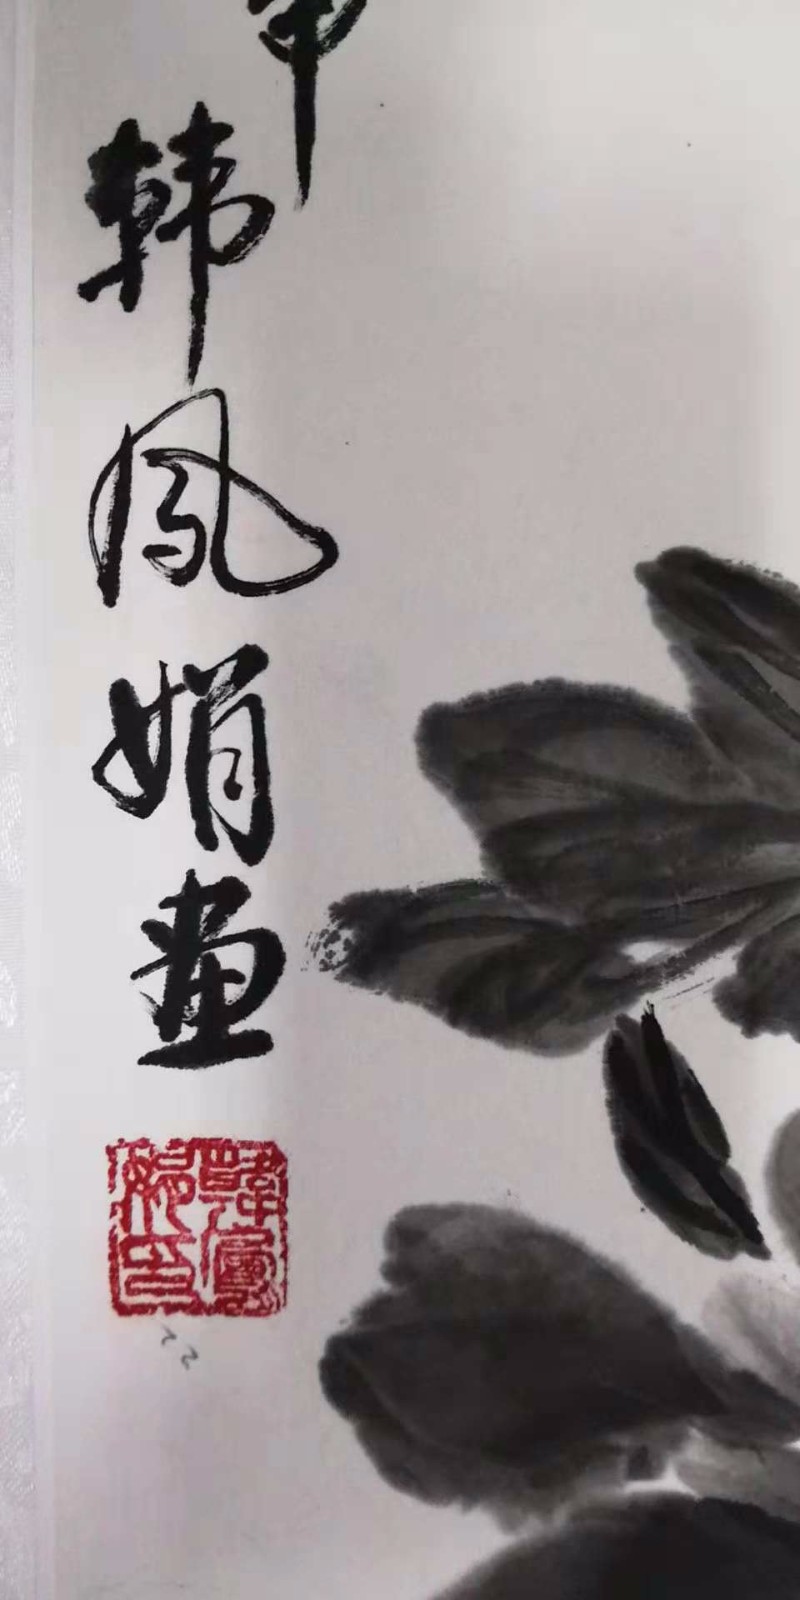 韩凤娟画
韩凤娟印